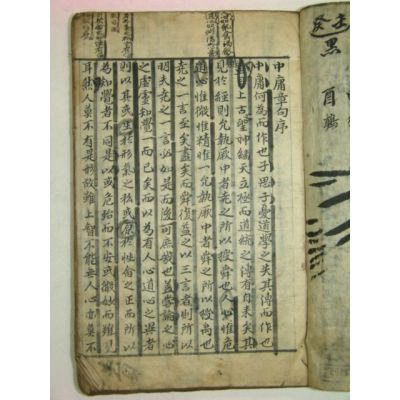 黑
酉鷄
中庸章句序
中庸何為而作也子思子憂道學之失其傳而作也
上古聖神繼天立極而道統之傳有自来矣其
見於經則允執厥中者堯之所以授舜也人心惟危
道心惟微惟精惟一允執厥中者舜之所以授禹也
堯之一言至矣盡矣而舜復益之以三言者則所以
明夫堯之一言必如是而後可庶幾也蓋嘗論之心
之虛靈知覺一而已矣而以為有人心道心之異者
則以其或生於形氣之私或原於性命之正而所以
為知覺者不同是以或危殆而不安或微妙而難見
耳然人莫不有是形故雖上智不能無人心亦莫不